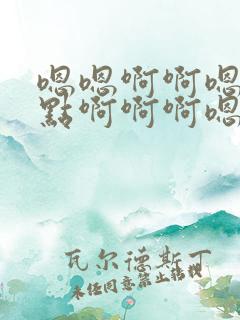 嗯嗯啊啊嗯
點啊啊啊嗯
瓦尔德斯丁
未经同意禁止转载